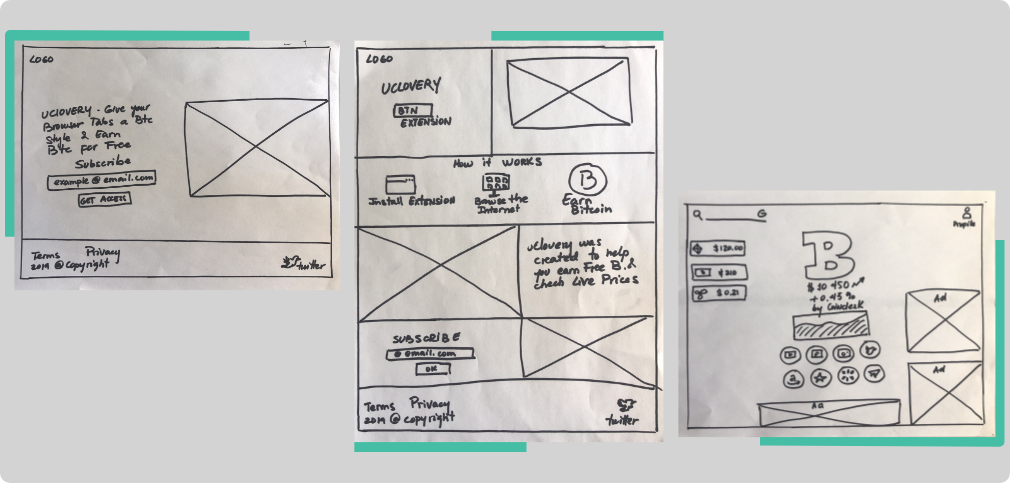 LOGO
UCLOVERY - Give your
Browser Tabs a Btc
Style & Earn
Btc for Free
Subscribe
example@email.com
GET ACCESS
Terms Privacy
2019 @ Copyright
twitter
LOGO
UCLOVERY
BTN
EXTENSION
How it WORKS
Install Extension
Bowse the
Internet
B
Earn
Bitcoin
uclovery was
created to help
you earn Free B. &
check Live Prices
SUBSCRIBE
@email.com
OK
Terms Privacy
2019 @ copyright
twitter
G
Profile
$120.00
$210
$0.21
B
$10 450
+0.45%
by Coindesk
Ad
Ad
Ad